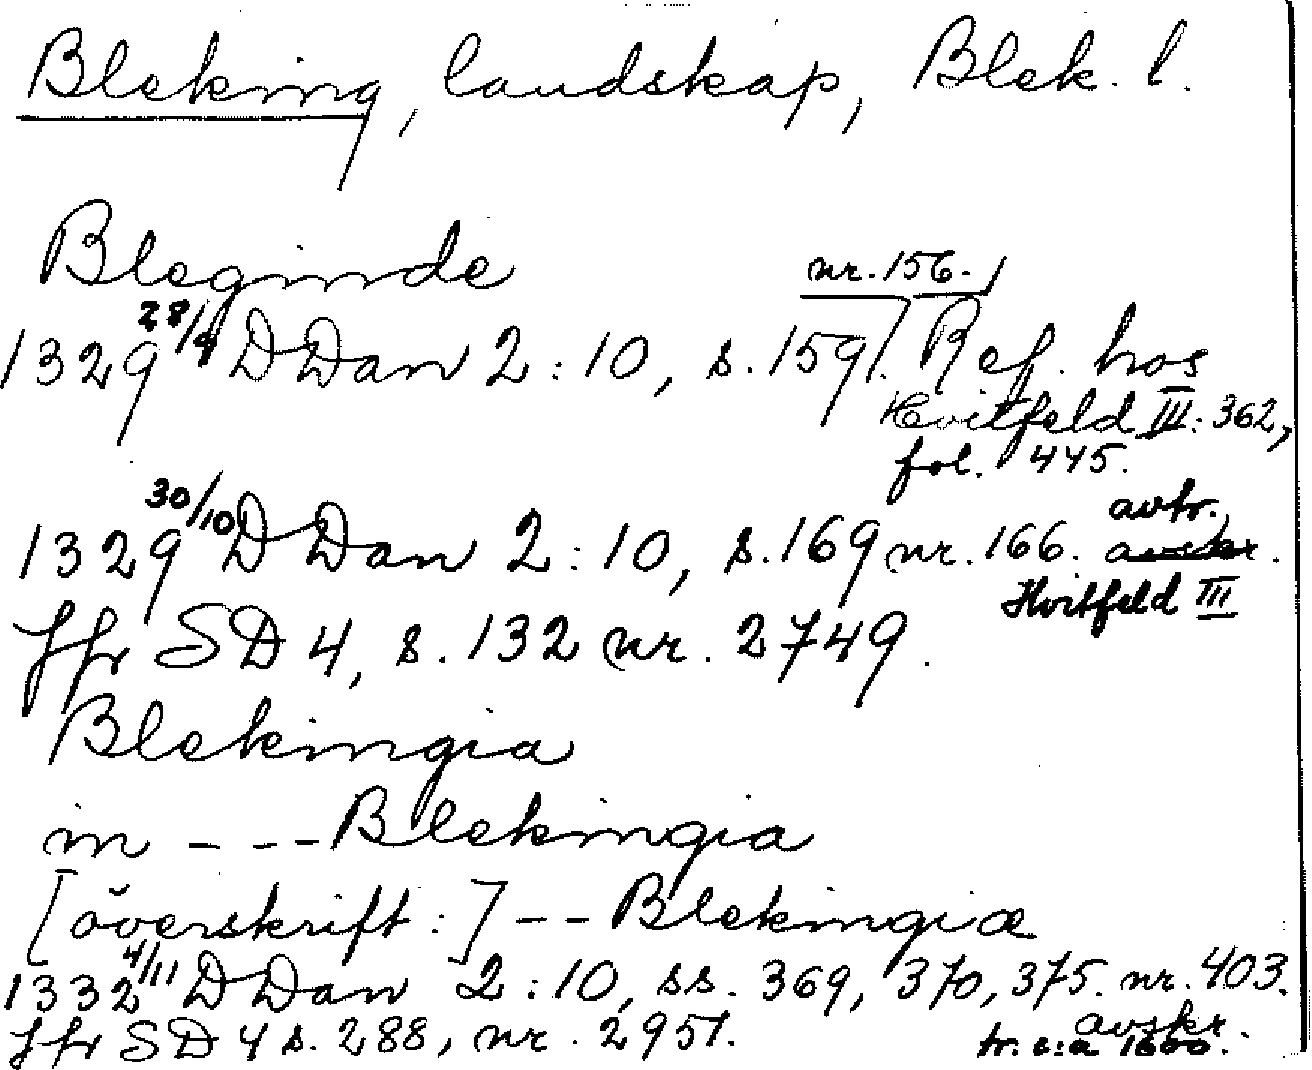 Bleking, landskap, Blek. l.
Bleginde
nr. 156.
1329 28/9 DDan 2:10, s. 159. Ref. hos
Hvitfeld III: 362,
fol. 445.
1329 30/10 DDan 2:10, s. 169 nr. 166. avtr. avskr.
Hvitfeld III
Jfr SD 4, s. 132 nr. 2749.
Blekingia
in --- Blekingia
[överskrift:] -- Blekingiæ
1332 4/11 DDan 2:10, ss. 369, 370, 375. nr. 403.
avskr.
Jfr SD 4 s. 288, nr. 2951. tr. c:a 1600.